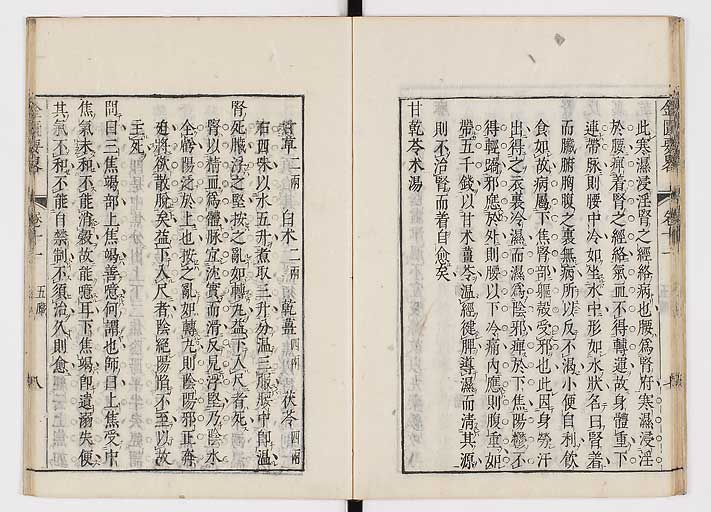 此寒濕浸淫腎之經絡病也腰爲腎府寒濕浸淫
於腰痺着腎之經絡氣血不得轉運故身體重下
連帶脉則腰中冷如坐水中形如水狀名曰腎着
而臓腑胸腹之裏無病所以反不渴小便自利飮
食如故病屬下焦腎部軀殻受邪也此因身勞汗
出得之衣裏冷濕而濕爲陰邪痺於下焦陽欝不
得輕蹻邪應於外則腰以下冷痛内應則腹重如
帶五千錢以甘木薑苓温經徤脾導濕而清其源
則不治腎而着自愈矣
甘乾苓术湯
甘草二兩 白术二兩 乾薑四兩 茯苓四兩
右四味以水五升煮取三升分温三服腰中卽温
腎死臓浮之堅按之亂如轉丸益下入尺者死
腎以精血爲體脉宜沈實而滑反見浮堅乃陰水
全虧陽泛於上也按之亂如轉丸則陰陽邪正奔
廹將欲散脫矣益下入尺者陰絕陽陷不至以故
主死
問曰三焦竭部上焦竭善噫何謂也師曰上焦受中
焦氣未和不能消穀故能噫耳下焦竭卽遺溺失便
其氣不和不能自禁制不須治久則愈
金匱要畧
卷十一
五臓
八